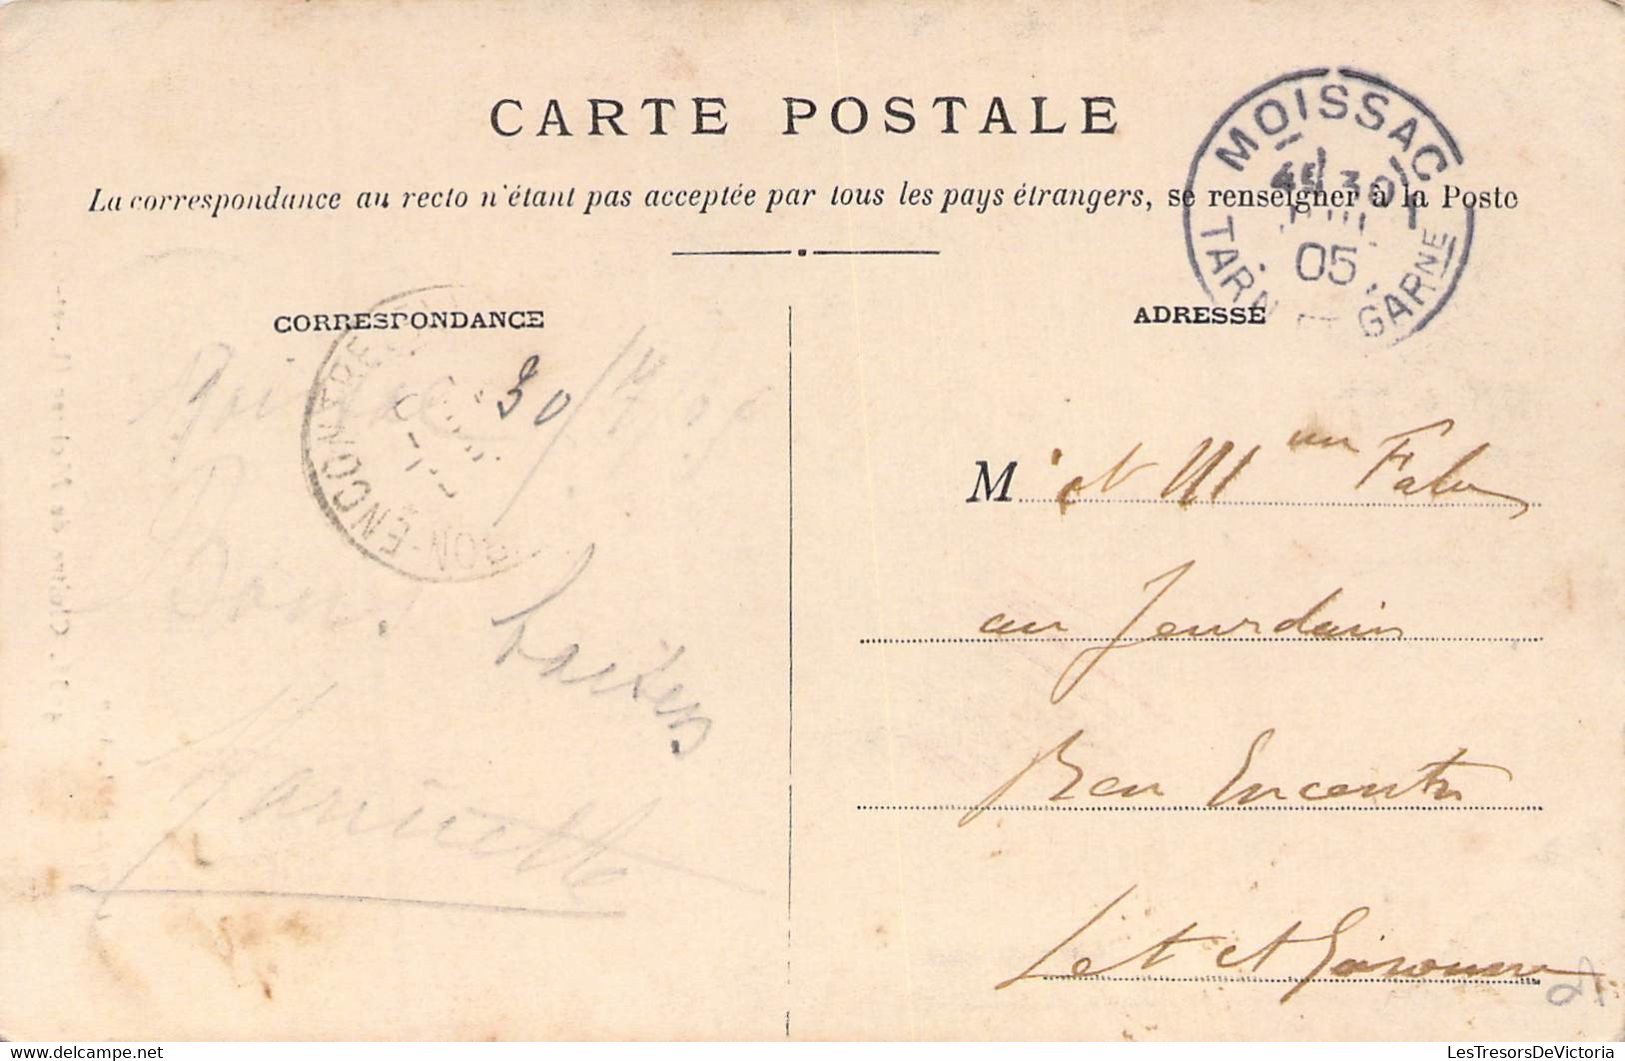 CARTE POSTALE
La correspondance au recto n'étant pas acceptée par tous les pays étrangers, se renseigner à la Poste
MOISSAC
30
05
TARN ET GARNE
CORRESPONDANCE
ADRESSE
30/4/05
Bons baisers
M et Mme
au Jourdain
Bon Encontre
Lot et Garonne
ON-ENCONTRE
LesTresorsDeVictoria